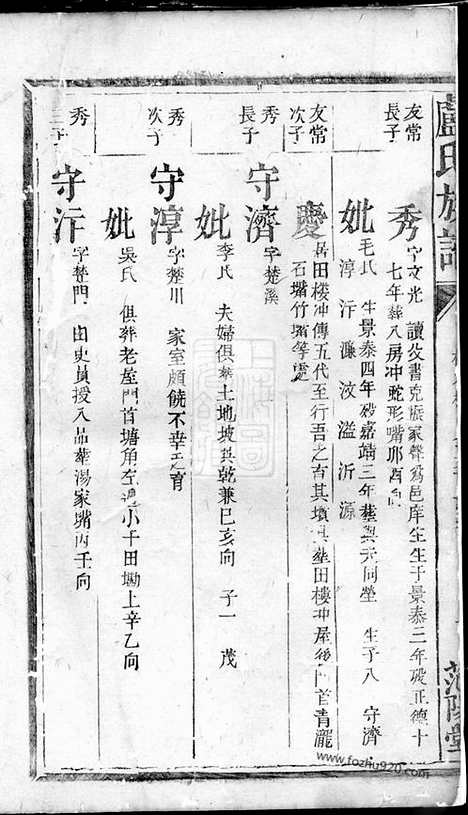 盧氏族譜
范陽堂
友常長子
秀 字文光 讀父書克振家聲爲邑庠生生于景泰三年殁正德十
七年葬八房冲蛇形嘴邜酉向
妣 毛氏 生景泰四年殁嘉靖三年塟與夫同塋 生子八 守濟
淳 汘 濂 汶 溢 沂 源
友常次子
慶 居田樓冲傳五代至行吾乏育其墳具塟田樓冲屋後 首青瀧
石嘴竹 等處
秀長子
守濟 字楚溪
妣 李氏 夫婦俱塟土地坡巽乾兼巳亥向 子一 茂
秀次子
守淳 字楚川 家室頗饒不幸乏育
妣 吳氏 俱葬老屋門首塘角左邊小千田墈上辛乙向
秀三子
守汘 字楚門 由吏員授八品葬湯家嘴丙壬向
www.fozhu920.com